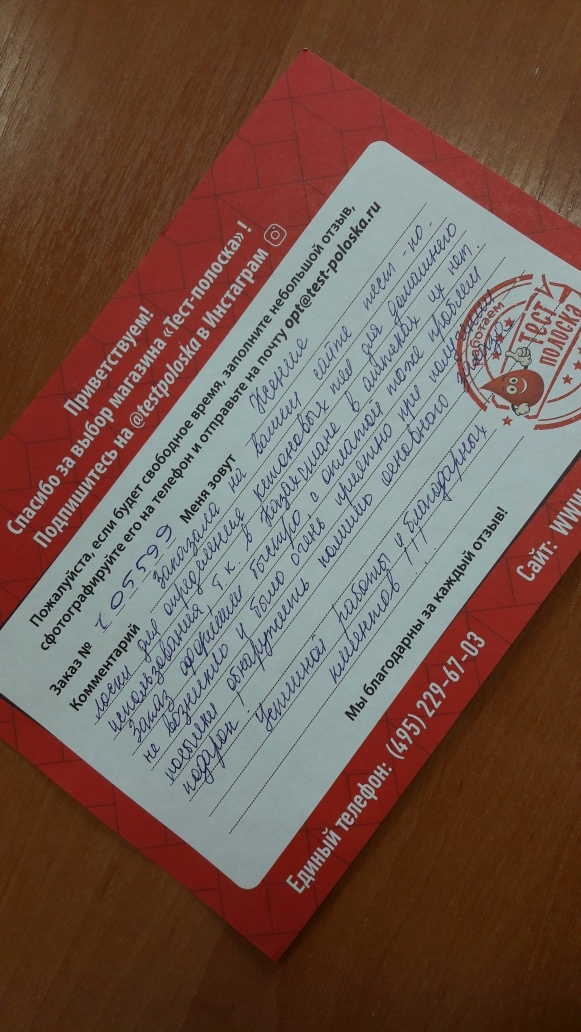 Приветствуем!
Спасибо за выбор магазина «Тест-полоска» !
Подпишитесь на @testpoloska в Инстаграм
Пожалуйста, если будет свободное время, заполните небольшой отзыв,
сфотографируйте его на телефон и отправьте на почту opt@test-poloska.ru
Заказ № 105599 Меня зовут Ксения
Комментарий заказала на вашем сайте тест-по-
лоски для определения кетоновых тел для домашнего
использования, т.к. в Казахстане в аптеках их нет.
Заказ оформили быстро, с оплатой тоже проблем
не возникло и было очень приятно при получении
посылки обнаружить помимо основного заказа
подарок.
Успешной работы и благодарных
клиентов !!!
Мы благодарны за каждый отзыв!
Единый телефон: (495) 229-67-03
Сайт: www.
работаем
ТЕСТ
ПОЛОСКА